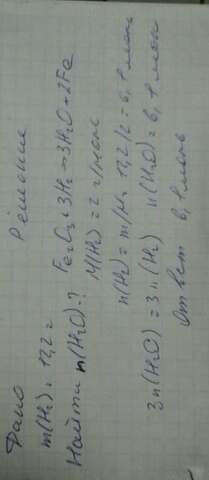 Дано
m(H₂) = 12,2 г
Найти n(H₂O)-?
Решение
Fe₂O₃ + 3H₂ → 3H₂O + 2Fe
M(H₂) = 2 г/моль
n(H₂) = m/M = 12,2/2 = 6,1 моль
3n(H₂O) = 3n(H₂) n(H₂O) = 6,1 моль
Ответ 6,1 моль